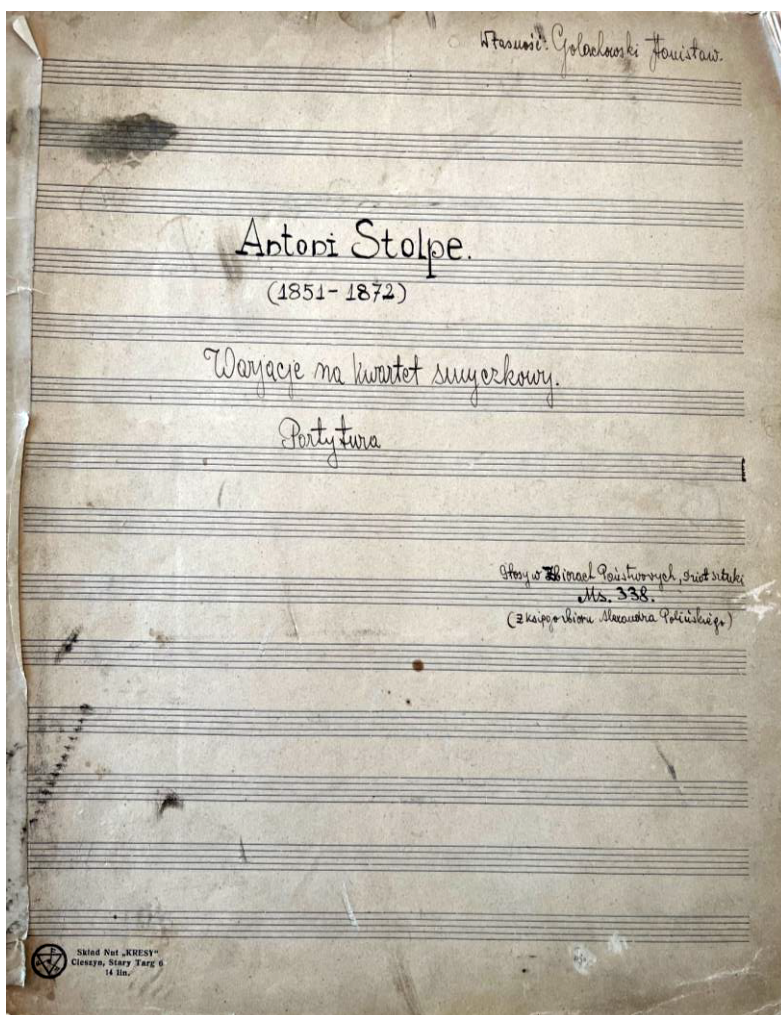 Własność: Golachowski Stanisław.
Antoni Stolpe.
(1851-1872)
Warjacje na kwartet smyczkowy.
Partytura
Głosy w Zbiorach Państwowych, sztuki
Ms. 338.
(z księgozbioru Alexandra Polińskiego)
Skład Nut „KRESY"
Cieszyn, Stary Targ 6
14 lin.